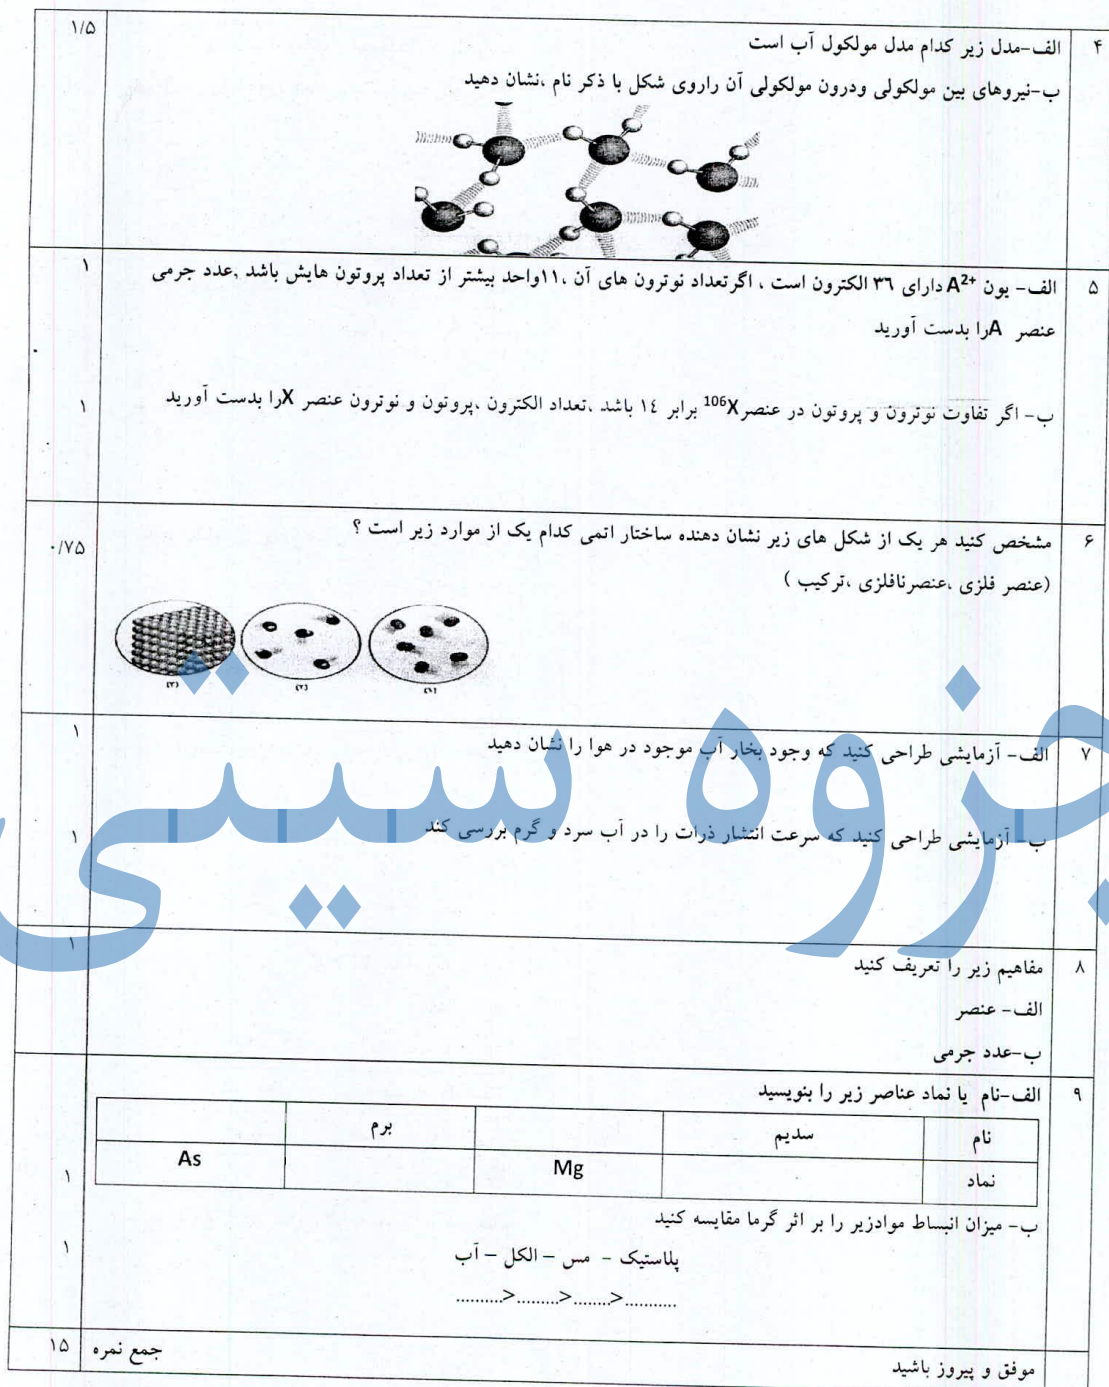 ۴
الف-مدل زیر کدام مدل مولکول آب است
۱/۵
ب-نیروهای بین مولکولی ودرون مولکولی آن راروی شکل با ذکر نام ،نشان دهید
۵
الف- یون A²⁺ دارای ۳۶ الکترون است ، اگرتعداد نوترون های آن ،۱۱واحد بیشتر از تعداد پروتون هایش باشد ,عدد جرمی
۱
عنصر Aرا بدست آورید
ب- اگر تفاوت نوترون و پروتون در عنصر¹⁰⁶X برابر ۱٤ باشد ،تعداد الکترون ،پروتون و نوترون عنصر Xرا بدست آورید
۱
۶
مشخص کنید هر یک از شکل های زیر نشان دهنده ساختار اتمی کدام یک از موارد زیر است ؟
۰/۷۵
(عنصر فلزی ،عنصرنافلزی ،ترکیب )
(۱)
(۲)
(۳)
۷
الف- آزمایشی طراحی کنید که وجود بخار آب موجود در هوا را نشان دهید
۱
ب- آزمایشی طراحی کنید که سرعت انتشار ذرات را در آب سرد و گرم بررسی کند
۱
جزوه سیتی
۸
مفاهیم زیر را تعریف کنید
۱
الف- عنصر
ب-عدد جرمی
۹
الف-نام یا نماد عناصر زیر را بنویسید
نام سدیم برم
نماد Mg As
۱
ب- میزان انبساط موادزیر را بر اثر گرما مقایسه کنید
پلاستیک - مس – الکل – آب
۱
...........>........>.........>..........
موفق و پیروز باشید
جمع نمره
۱۵